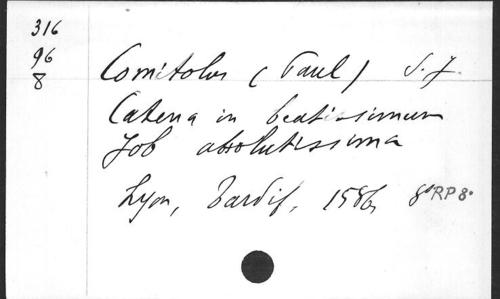 316
96
8
Comitolus (Paul) S.J.
Catena in beatissimum
Job absolutissima
Lyon, Tardif, 1586, 8° RP 8°